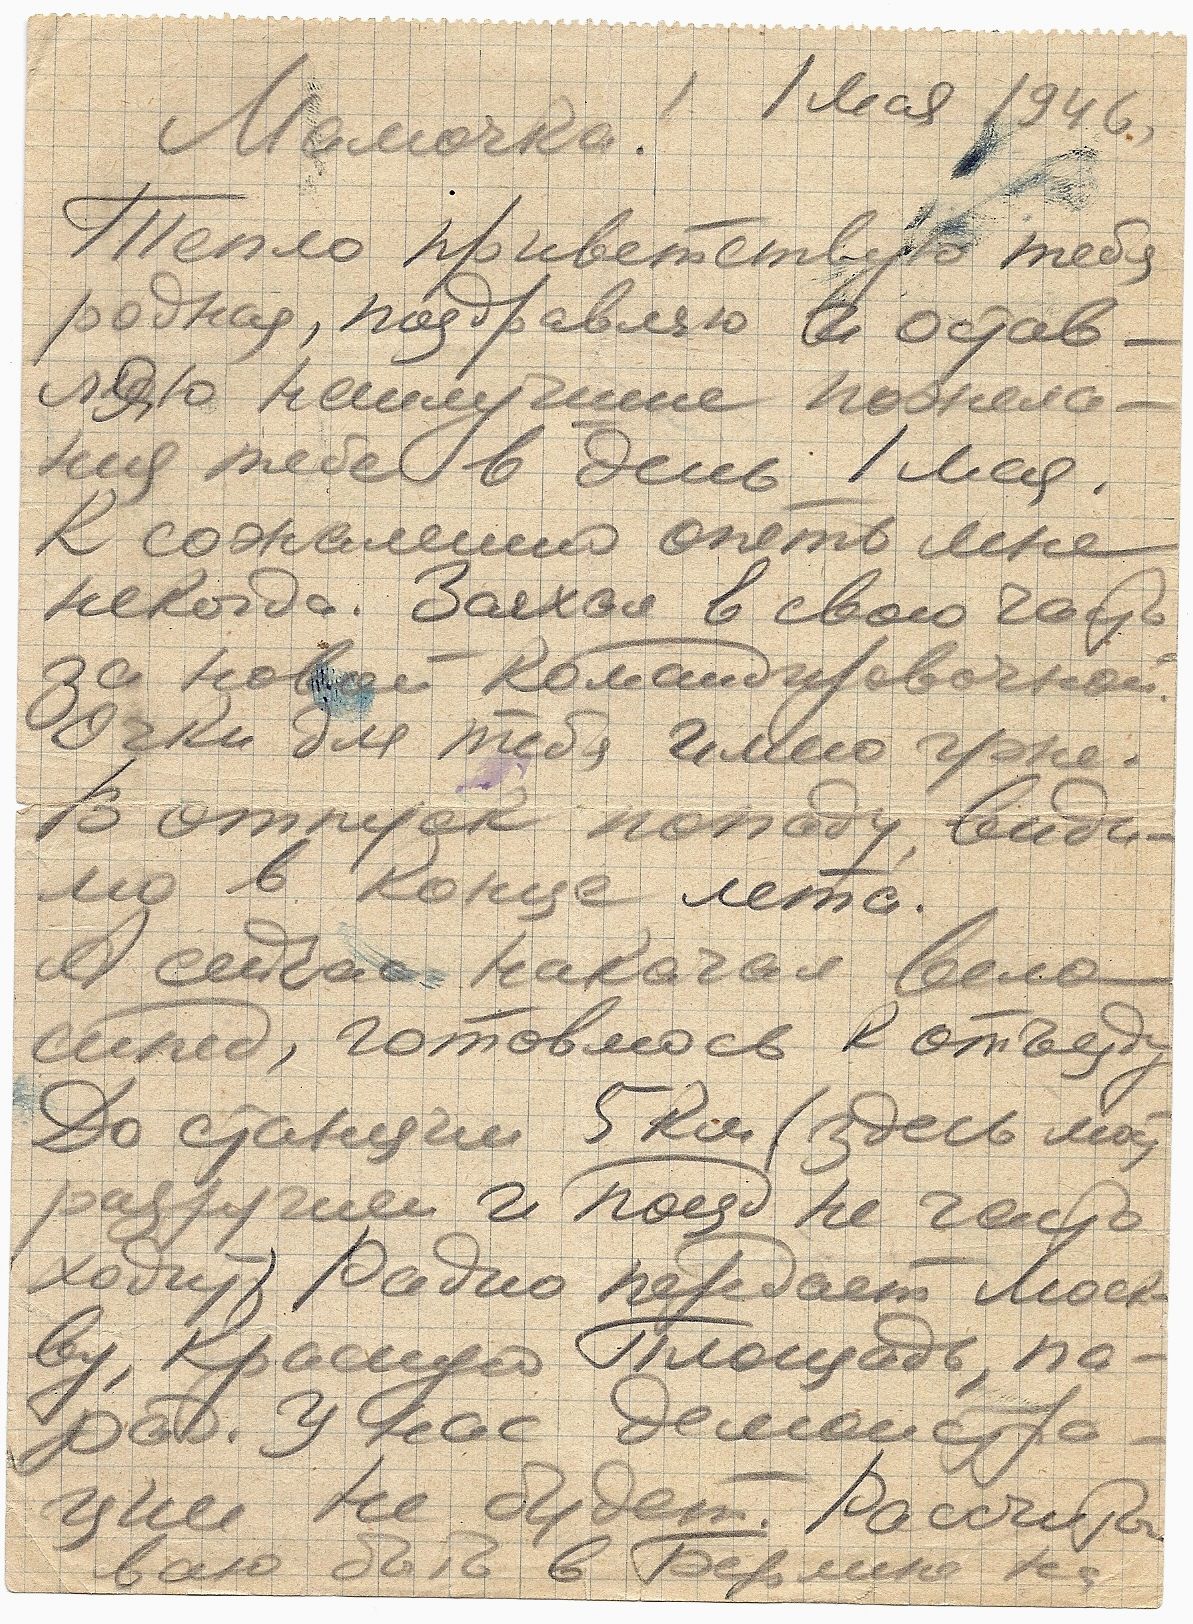 1 мая 1946,
Мамочка!
Тепло приветствую тебя
родная, поздравляю и остав-
ляю наилучшие пожела-
ния тебе в день 1 мая.
К сожалению опять мне
некогда. Заехал в свою часть
за новой командировочной.
Очки для тебя имею уже.
В отпуск попаду, види-
мо в конце лета.
Я сейчас накачал вело-
сипед, готовлюсь к отъезду
До станции 5 км (здесь мост
разрушен и поезд не часто
ходит) Радио передает Моск-
ву, Красную Площадь, па-
рад. У нас демонстра-
ции не будет. Рассчиты
ваю быть в Берлине на